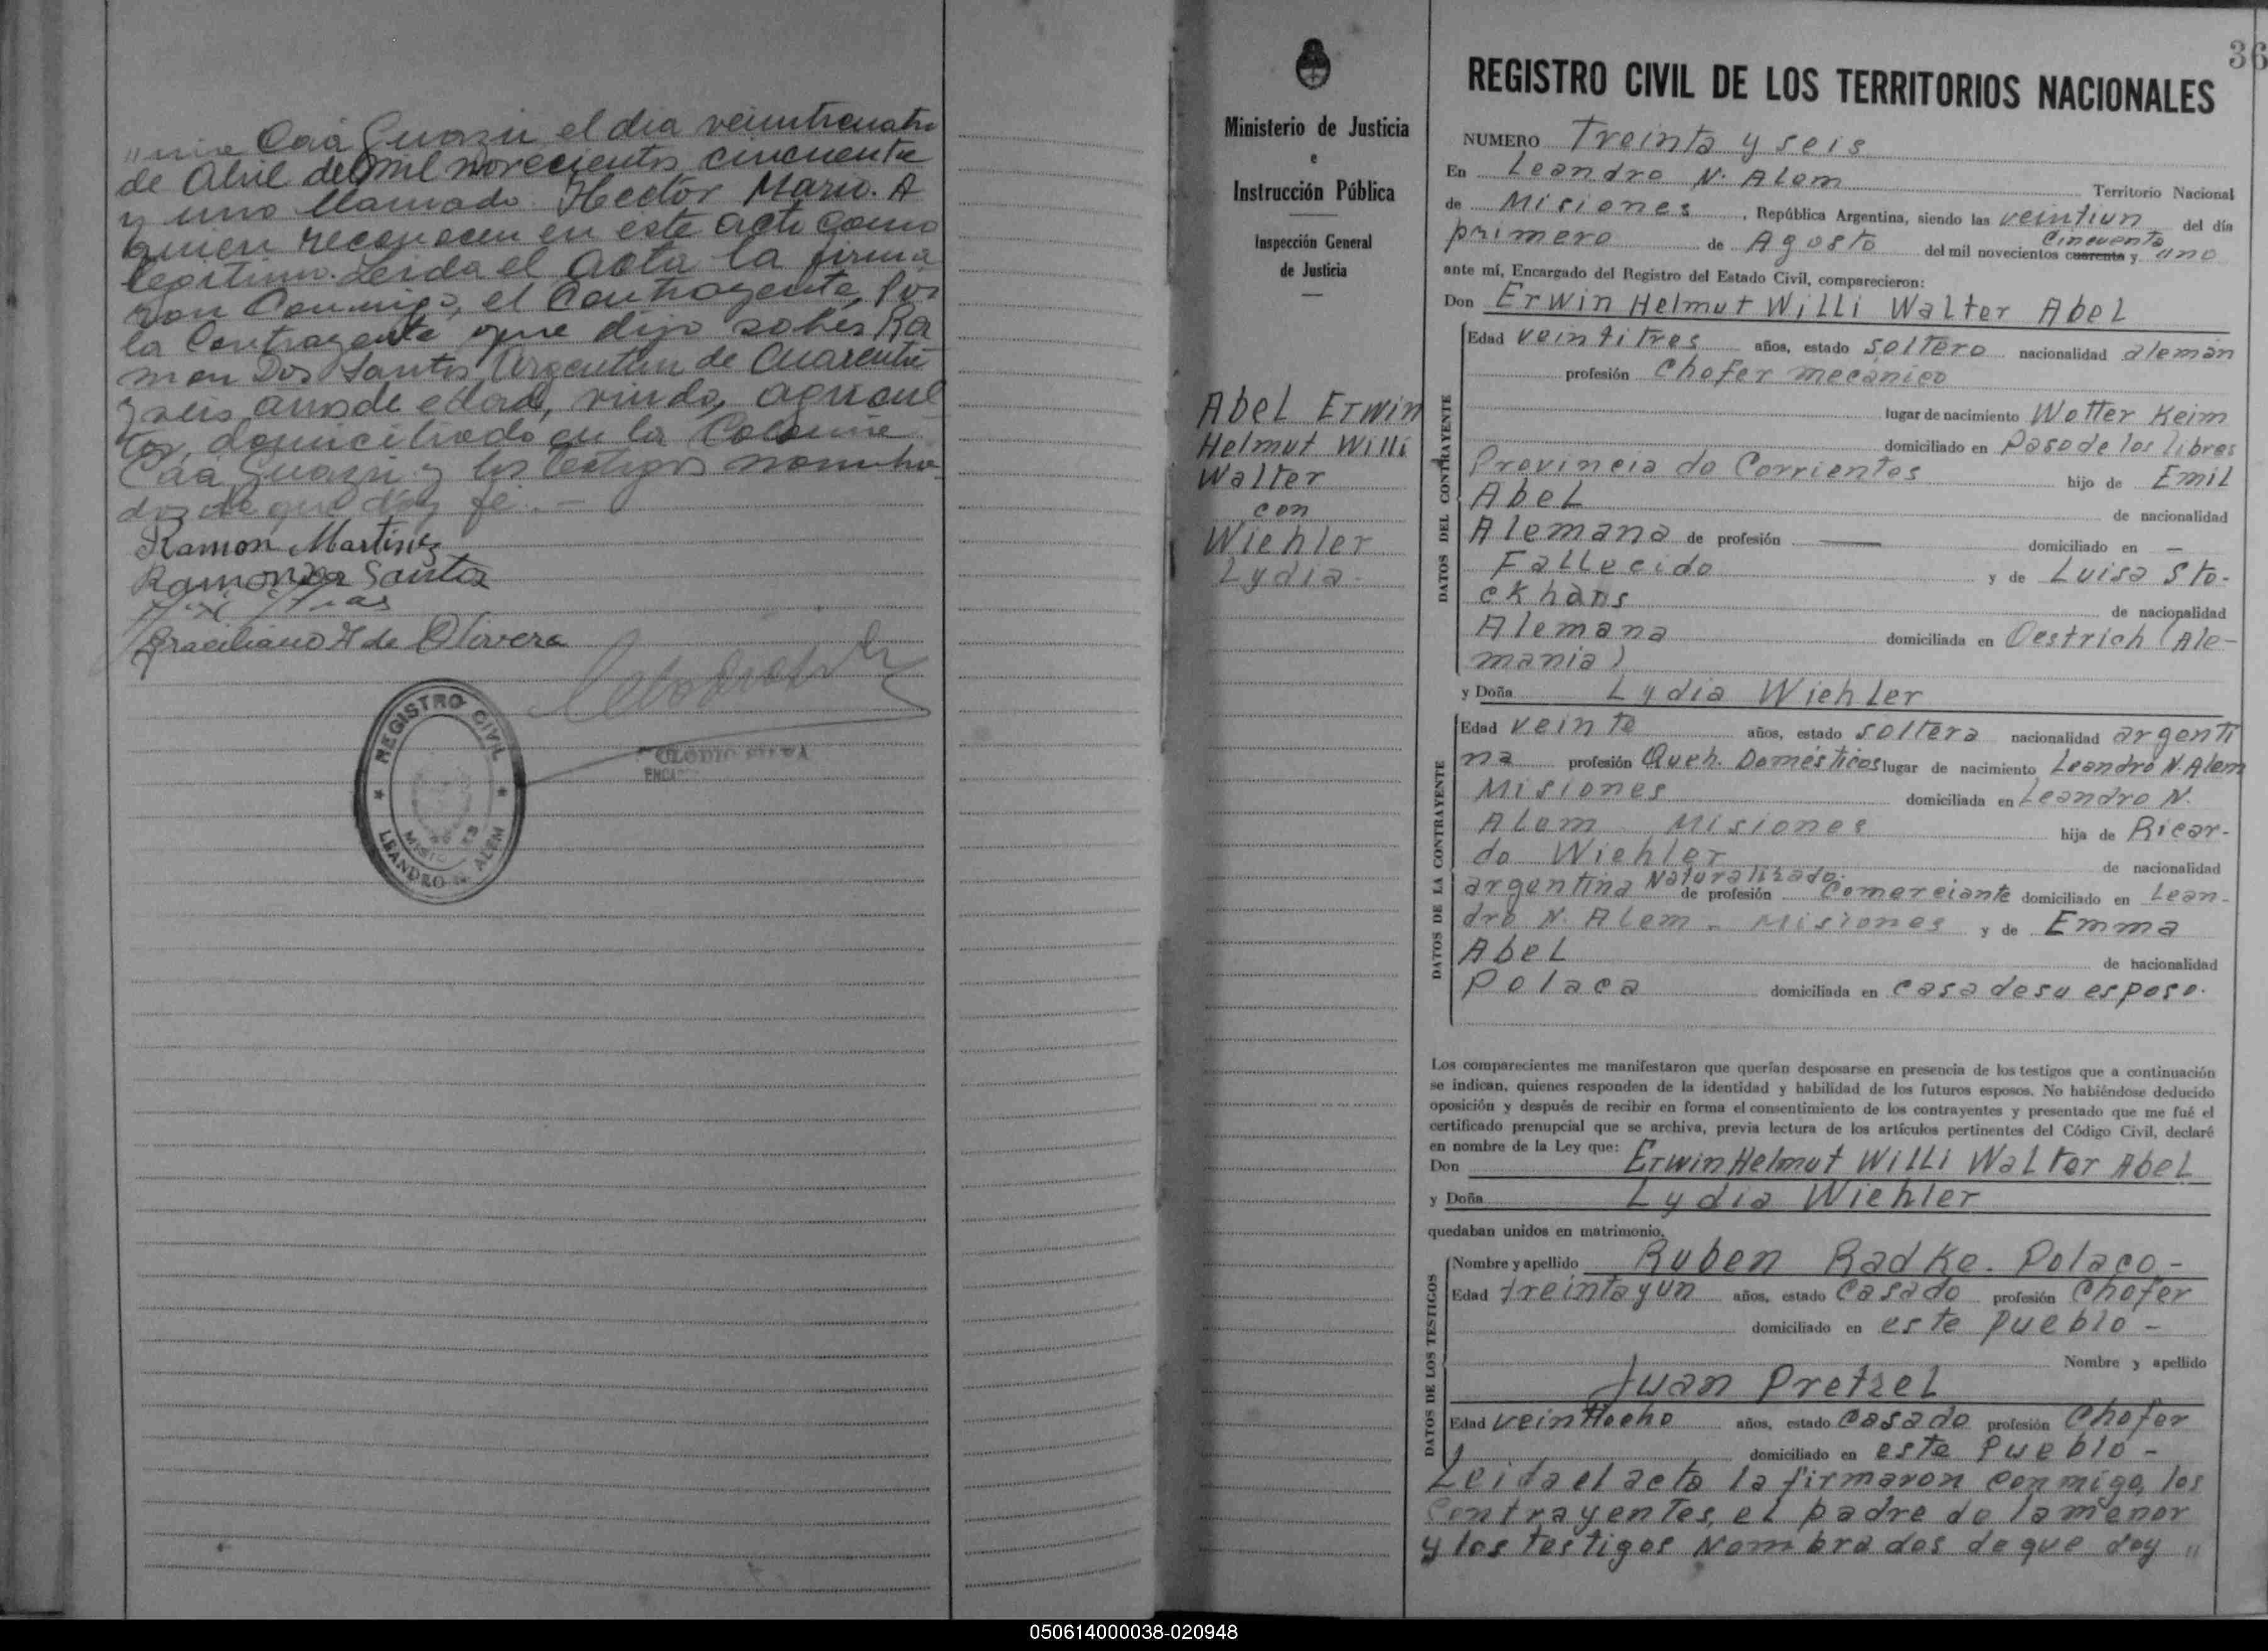 "nia Caá Guazú, el dia veinticuatro
de Abril de mil novecientos cincuenta
y uno llamado Hector Mario. A
quien reconocen en este acto como
legitimo. Leida el acta la firma
ron conmigo, el Contrayente, por
la Contrayente que dijo saber Ra
mon Dos Santos Argentino de Cuarenta
y seis años de edad, viudo, agricul
tor, domiciliado en la Colonia
Caá Guazú y los testigos nombra
dos de que doy fé. -
Ramon Martinez
Ramon Dos Santos
Graciliano H de Olivera
REGISTRO CIVIL
MISIONES
LEANDRO N. ALEM
36
Ministerio de Justicia
e
Instrucción Pública
Inspección General
de Justicia
Abel Erwin
Helmut Willi
Walter
con
Wiehler
Lydia.
REGISTRO CIVIL DE LOS TERRITORIOS NACIONALES
NUMERO Treinta y seis
En Leandro N. Alem Territorio Nacional
de Misiones, República Argentina, siendo las veintiun del día
primero de Agosto del mil novecientos cuarenta y cincuenta uno
ante mí, Encargado del Registro del Estado Civil, comparecieron:
Don Erwin Helmut Willi Walter Abel
DATOS DEL CONTRAYENTE
Edad veintitres años, estado soltero nacionalidad alemán
profesión Chofer mecanico
lugar de nacimiento Wotter Keim
domiciliado en Paso de los libres
Provincia de Corrientes hijo de Emil
Abel de nacionalidad
Alemana de profesión — domiciliado en —
Fallecido y de Luisa Sto-
ckhans de nacionalidad
Alemana domiciliada en Oestrich (Ale-
mania)
y Doña Lydia Wiehler
DATOS DE LA CONTRAYENTE
Edad veinte años, estado soltera nacionalidad argenti
na profesión Queh. Domésticos lugar de nacimiento Leandro N. Alem
Misiones domiciliada en Leandro N.
Alem Misiones hija de Ricar-
do Wiehler de nacionalidad
argentina Naturalizado. de profesión Comerciante domiciliado en Lean-
dro N. Alem - Misiones y de Emma
Abel de nacionalidad
Polaca domiciliada en casa de su esposo.
Los comparecientes me manifestaron que querían desposarse en presencia de los testigos que a continuación
se indican, quienes responden de la identidad y habilidad de los futuros esposos. No habiéndose deducido
oposición y después de recibir en forma el consentimiento de los contrayentes y presentado que me fué el
certificado prenupcial que se archiva, previa lectura de los artículos pertinentes del Código Civil, declaré
en nombre de la Ley que:
Don Erwin Helmut Willi Walter Abel
y Doña Lydia Wiehler
quedaban unidos en matrimonio.
DATOS DE LOS TESTIGOS
Nombre y apellido Ruben Radke. Polaco -
Edad treinta y un años, estado casado profesión Chofer
domiciliado en este pueblo -
Nombre y apellido
Juan Pretzel
Edad veintiocho años, estado casado profesión Chofer
domiciliado en este Pueblo -
Leida el acta la firmaron conmigo, los
contrayentes, el padre de la menor
y los testigos Nombrados de que doy "
050614000038-020948